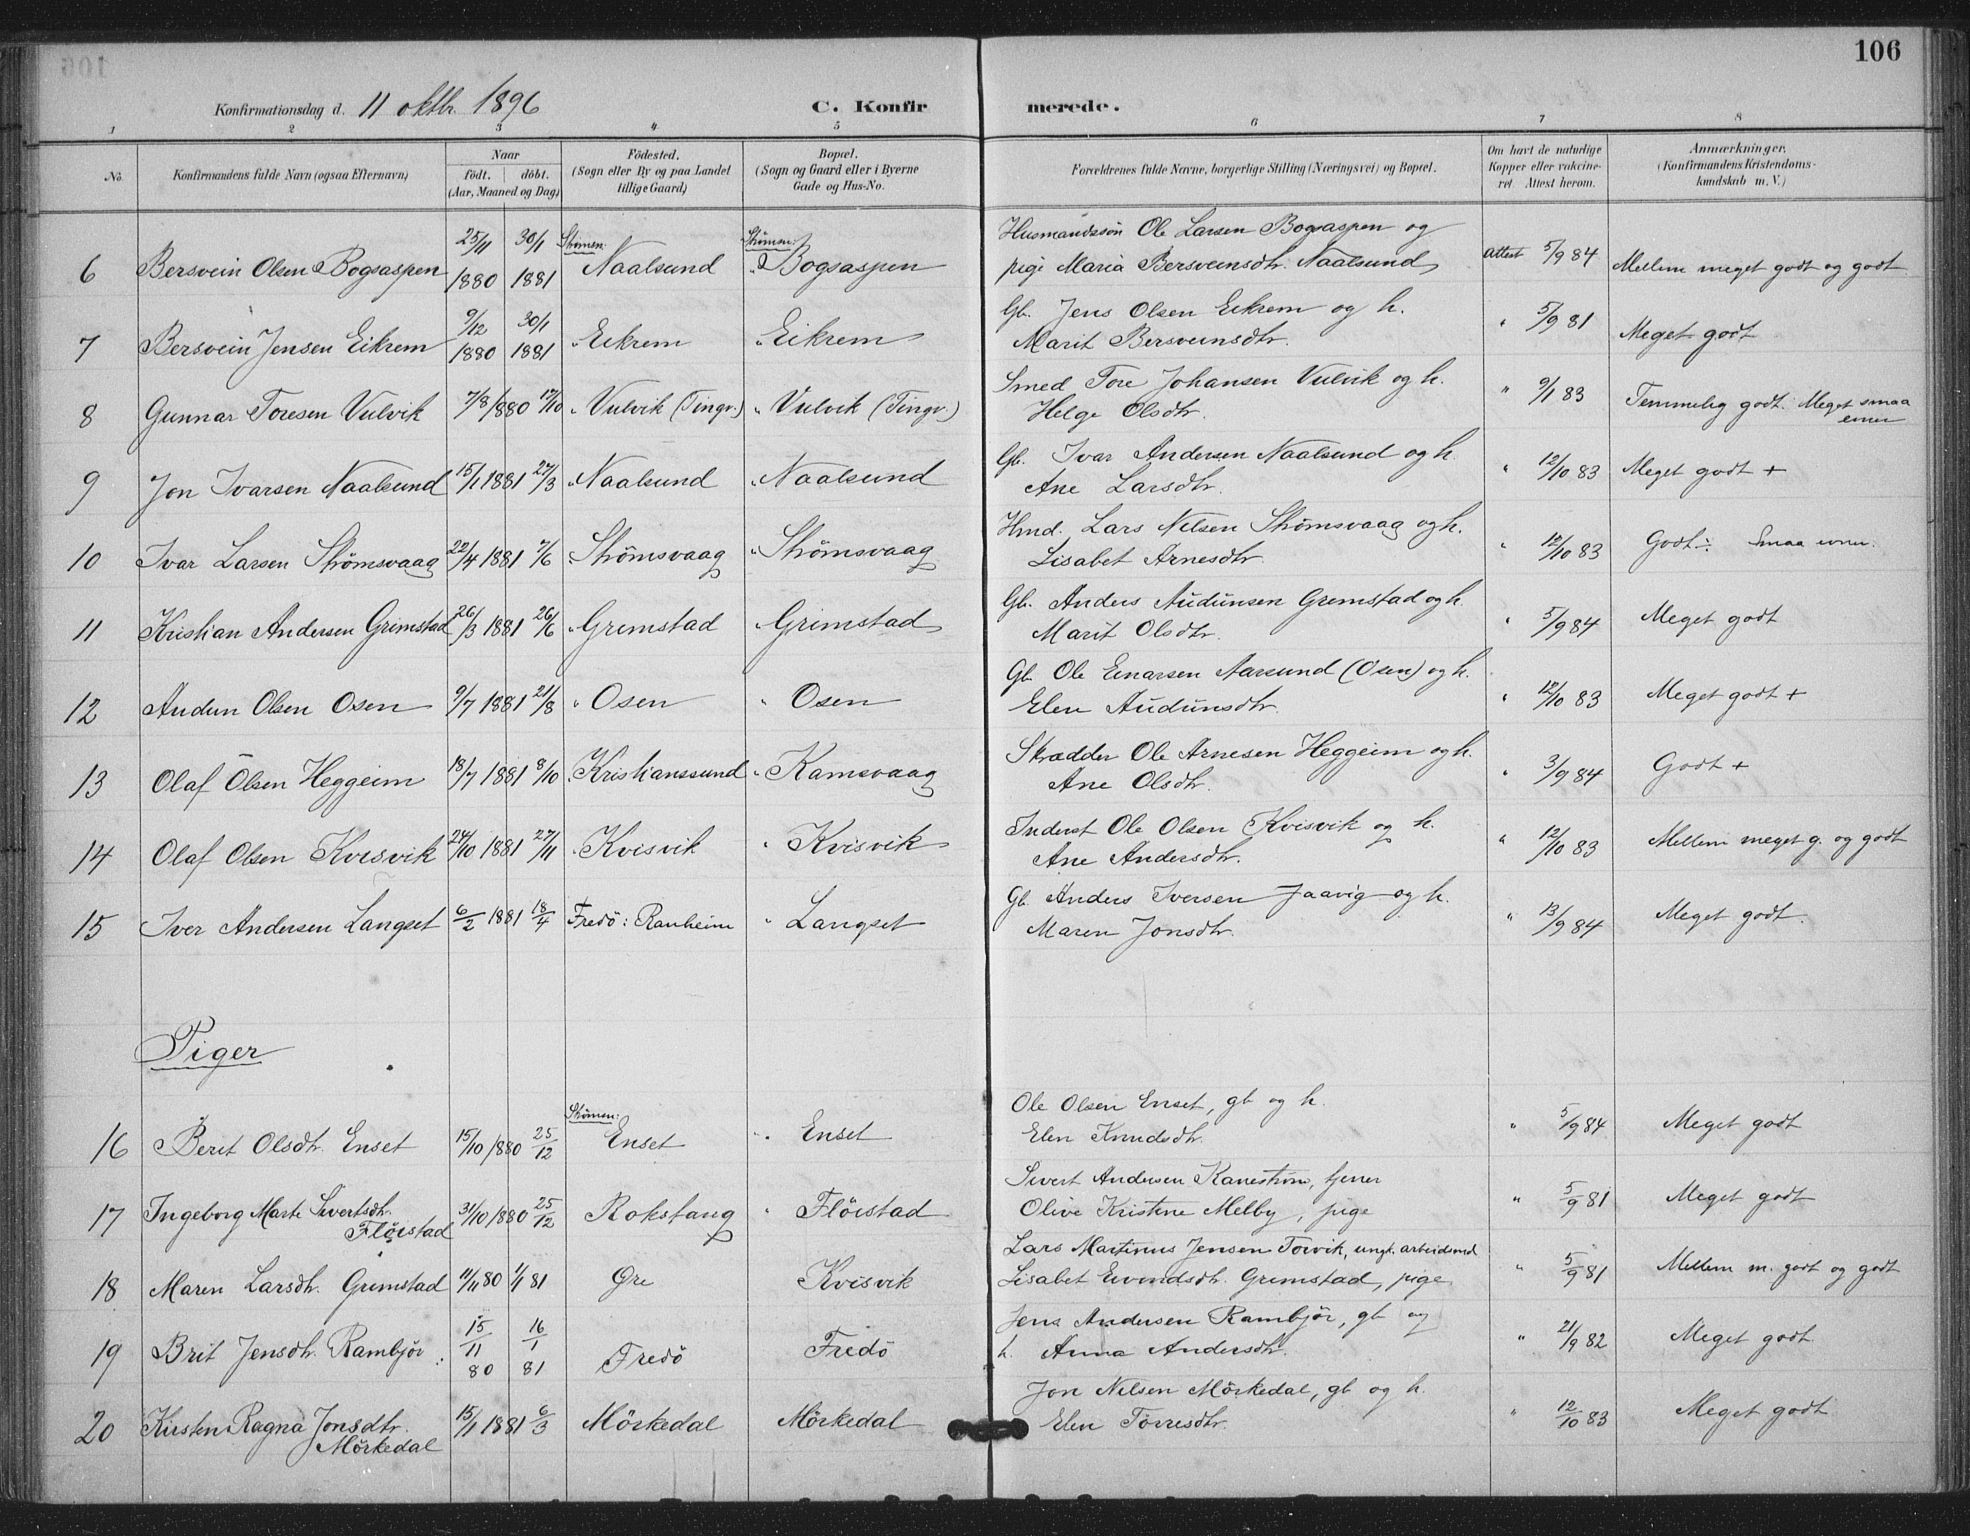 106
Konfirmationsdag d. 11 oktbr. 1896 C. Konfirmerede.
1 2 3 4 5 6 7 8
No. Konfirmandens fulde Navn (ogsaa Efternavn) Naar födt. döbt. (Aar, Maaned og Dag) Födested. (Sogn eller By og paa Landet tillige Gaard) Bopæl. (Sogn og Gaard eller i Byerne Gade og Hus-No. Forældrenes fulde Navne, borgerlige Stilling (Næringsvei) og Bopæl. Om havt de naturlige Kopper eller vakcineret Attest herom. Anmærkninger. (Konfirmandens Kristendomskundskab m. V.)
6 Bersvein Olsen Bogsaspen 25/11 1880 30/1 1881 Strömsn: Naalsund Strömsn: Bogsaspen Husmandssön Ole Larsen Bogsaspen og
pige Maria Bersveinsdtr. Naalsund Attest 5/9 84 Mellem meget godt og godt
7 Bersvein Jensen Eikrem 9/12 1880 30/1 1881 " Eikrem " Eikrem Gb. Jens Olsen Eikrem og h.
Marit Bersveinsdtr. " 5/9 81 Meget godt
8 Gunnar Toresen Vulvik 7/8 1880 17/10 " Vulvik (Tingv.) " Vulvik (Tingv.) Smed Tore Johansen Vulvik og h.
Helge Olsdtr. " 9/1 83 Temmelig godt. Meget smaa evner
9 Jon Ivarsen Naalsund 15/1 1881 27/3 " Naalsund " Naalsund Gb. Ivar Andersen Naalsund og h.
Ane Larsdtr. " 12/10 83 Meget godt +
10 Ivar Larsen Strömsvaag 22/4 1881 7/6 " Strömsvaag " Strömsvaag Hmd. Lars Nilsen Strömsvaag og h.
Lisabet Arnesdtr. " 12/10 83 Godt ÷ Smaa evner.
11 Kristian Andersen Grimstad 26/3 1881 26/6 " Grimstad " Grimstad Gb. Anders Audunsen Grimstad og h.
Marit Olsdtr. " 5/9 84 Meget godt
12 Audun Olsen Osen 9/7 1881 21/8 " Osen " Osen Gb. Ole Einarsen Aarsund (Osen) og h.
Elen Audunsdtr. " 12/10 83 Meget godt +
13 Olaf Olsen Heggeim 18/7 1881 8/10 " Kristianssund " Kamsvaag Skrædder Ole Arnesen Heggeim og h.
Ane Olsdtr. " 3/9 84 Godt +
14 Olaf Olsen Kvisvik 24/10 1881 27/11 " Kvisvik " Kvisvik Inderst Ole Olsen Kvisvik og h.
Ane Andersdtr. " 12/10 83 Mellem meget g. og godt
15 Iver Andersen Langset 6/2 1881 18/4 Fredö: Ranheim " Langset Gb Anders Iversen Jaavig og h.
Maren Jonsdtr. " 13/9 84 Meget godt.
Piger
16 Berit Olsdtr. Enset 15/10 1880 25/12 Strömsn: Enset " Enset Ole Olsen Enset, gb og h.
Elen Knudsdtr. " 5/9 84 Meget godt
17 Ingeborg Marte Sivertsdtr. Flöistad 31/10 1880 25/12 Rokstang " Flöistad Sivert Andersen Kaneström, tjener
Olive Kristine Melby, pige " 5/9 81 Meget godt
18 Maren Larsdtr. Grimstad 11/11 80 1/1 81 Øre Kvisvik Lars Martinus Jensen Torvik, ungk. arbeidsmd
Lisabet Eivindsdtr. Grimstad, pige " 5/9 81 Mellem m. godt og godt
19 Brit Jensdtr. Rambjör 15/11 80 16/1 81 Fredö Fredö Jens Andersen Rambjör, gb og
h. Anna Andersdtr. " 21/9 82 Meget godt
20 Kirsten Ragna Jonsdtr. Mörkedal 15/1 1881 6/3 Mörkedal Mörkedal Jon Nilsen Mörkedal, gb og h.
Elen Torresdtr. " 12/10 83 Meget godt